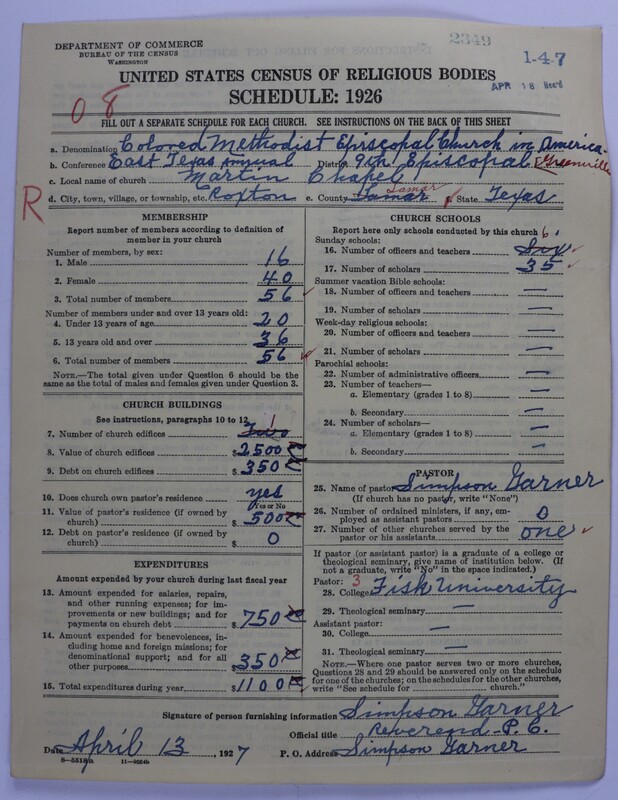 DEPARTMENT OF COMMERCE
BUREAU OF THE CENSUS
WASHINGTON
2349
1-4-7
APR 18 Rec'd
UNITED STATES CENSUS OF RELIGIOUS BODIES
SCHEDULE: 1926
0 8
FILL OUT A SEPARATE SCHEDULE FOR EACH CHURCH. SEE INSTRUCTIONS ON THE BACK OF THIS SHEET
a. Denomination Colored Methodist Episcopal Church in America
b. Conference East Texas Annual District 9th Episcopal Greenville
c. Local name of church Martin Chapel
R
d. City, town, village, or township, etc. Roxton e. County Lamar Lamar f. State Texas
MEMBERSHIP
Report number of members according to definition of member in your church
Number of members, by sex:
1. Male 16
2. Female 40
3. Total number of members 56
Number of members under and over 13 years old:
4. Under 13 years of age 20
5. 13 years old and over 36
6. Total number of members 56
NOTE.—The total given under Question 6 should be
the same as the total of males and females given under Question 3.
CHURCH BUILDINGS
See instructions, paragraphs 10 to 12
7. Number of church edifices Two 1
8. Value of church edifices $2500
9. Debt on church edifices $350
10. Does church own pastor's residence yes
Yes or No
11. Value of pastor's residence (if owned by
church) $500
12. Debt on pastor's residence (if owned by
church) $ 0
EXPENDITURES
Amount expended by your church during last fiscal year
13. Amount expended for salaries, repairs,
and other running expenses; for im-
provements or new buildings; and for
payments on church debt $750
14. Amount expended for benevolences, in-
cluding home and foreign missions; for
denominational support; and for all
other purposes $350
15. Total expenditures during year $1100
CHURCH SCHOOLS
Report here only schools conducted by this church
Sunday schools:
16. Number of officers and teachers Six 6
17. Number of scholars 35
Summer vacation Bible schools:
18. Number of officers and teachers —
19. Number of scholars —
Week-day religious schools:
20. Number of officers and teachers —
21. Number of scholars —
Parochial schools:
22. Number of administrative officers —
23. Number of teachers—
a. Elementary (grades 1 to 8) —
b. Secondary —
24. Number of scholars—
a. Elementary (grades 1 to 8) —
b. Secondary —
PASTOR
25. Name of pastor Simpson Garner
(If church has no pastor, write "None")
26. Number of ordained ministers, if any, em-
ployed as assistant pastors 0
27. Number of other churches served by the
pastor or his assistants one
If pastor (or assistant pastor) is a graduate of a college or
theological seminary, give name of institution below. (If
not a graduate, write "No" in the space indicated.)
Pastor: 3
28. College Fisk University
29. Theological seminary —
Assistant pastor:
30. College —
31. Theological seminary —
NOTE.—Where one pastor serves two or more churches,
Questions 28 and 29 should be answered only on the schedule
for one of the churches; on the schedules for the other churches,
write "See schedule for church."
Signature of person furnishing information Simpson Garner
Official title Reverend P. C.
Date April 13, 1927 P. O. Address Simpson Garner